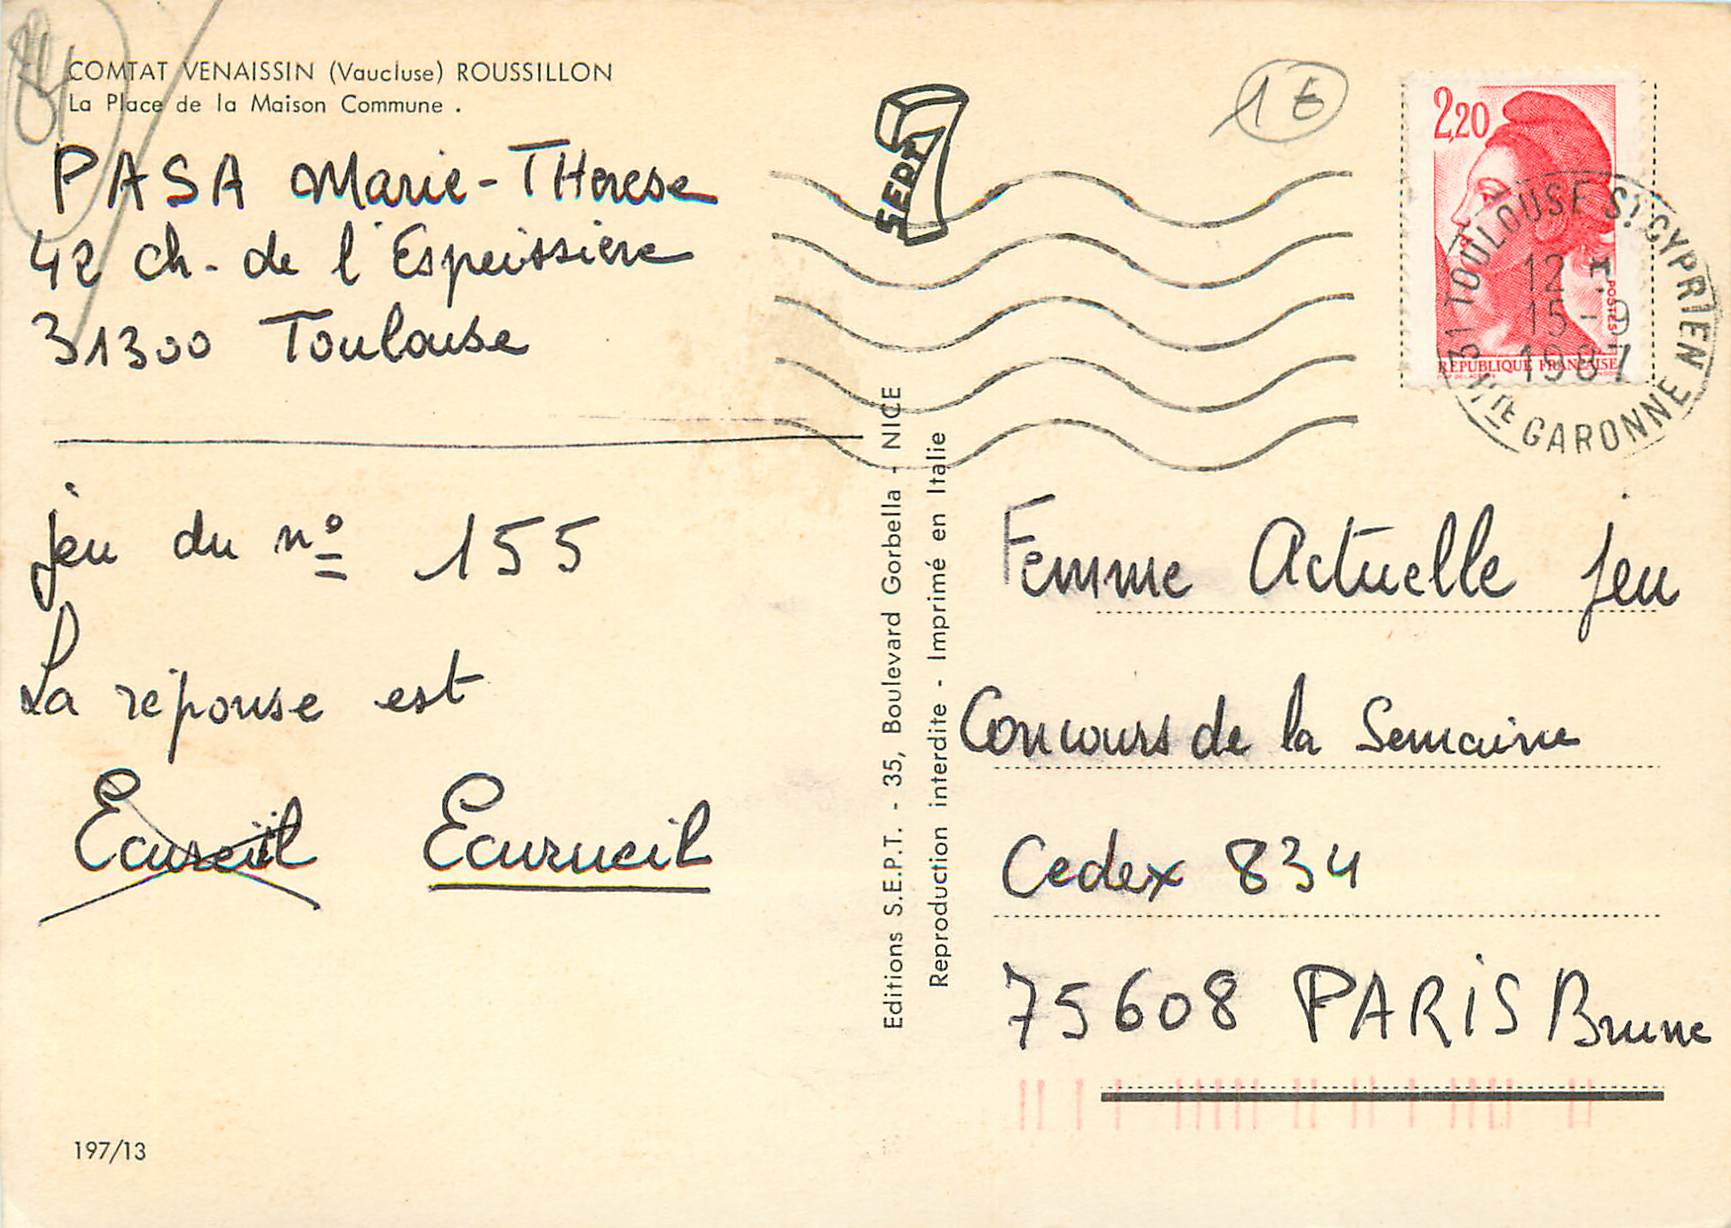 COMTAT VENAISSIN (Vaucluse) ROUSSILLON
La Place de la Maison Commune .
84
PASA Marie-THerese
42 ch. de l'Espeissiere
31300 Toulouse
jeu du nº 155
La réponse est
Ecureuil Ecurueil
197/13
Editions S.E.P.T. - 35, Boulevard Gorbella - NICE
Reproduction interdite - Imprimé en Italie
SEPT
1€
2,20
POSTES
REPUBLIQUE FRANÇAISE
31 TOULOUSE ST CYPRIEN
12 H
15-9
1987
HTE GARONNE
Femme Actuelle jeu
Concours de la Semaine
Cedex 834
75608 PARIS Brune